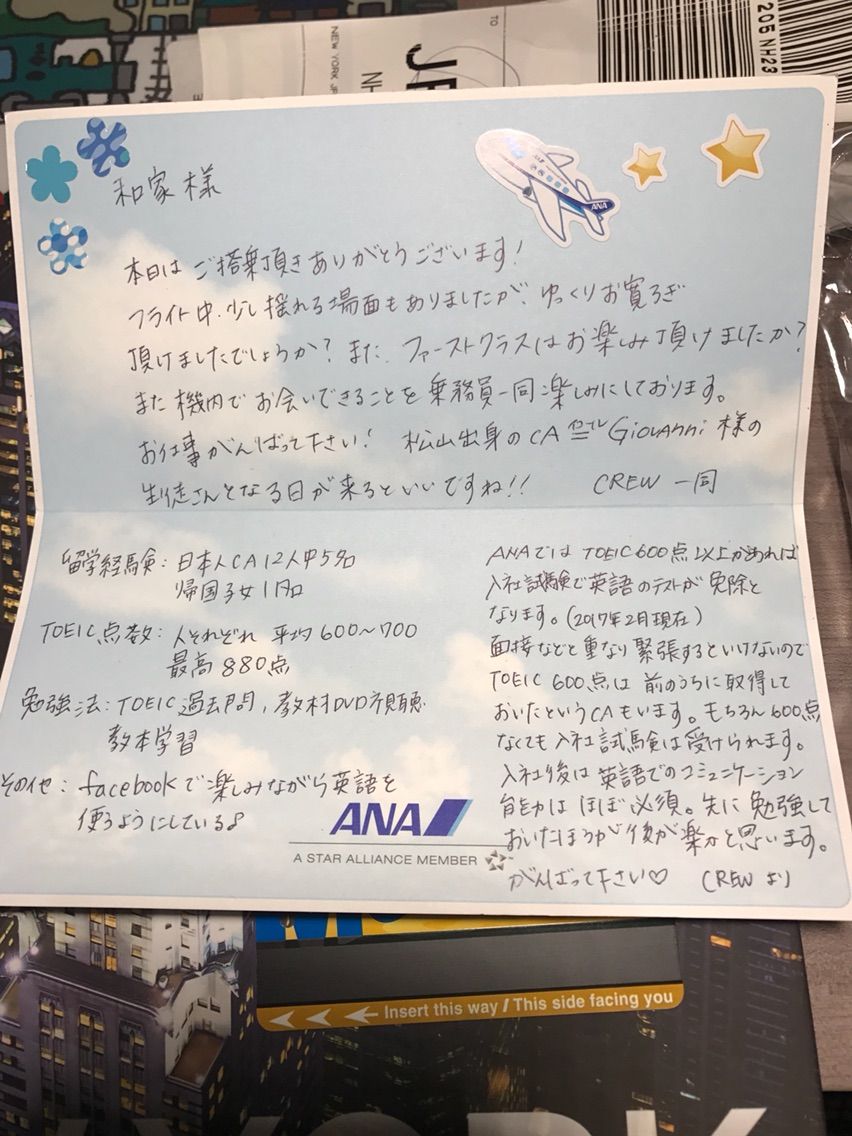 TO
NEW YORK JF
NH
205 NH23
ANA
和家様
本日はご搭乗頂きありがとうございます!
フライト中、少し揺れる場面もありましたが、ゆっくりお寛ぎ
頂けましたでしょうか? また、ファーストクラスはお楽しみ頂けましたか?
また機内でお会いできることを乗務員一同楽しみにしております。
お仕事がんばって下さい! 松山出身のCA Giovanni様の
生徒さんとなる日が来るといいですね!! CREW 一同
留学経験:日本人CA12人中5名
帰国子女1名
TOEIC点数:人それぞれ 平均600〜700
最高880点
勉強法:TOEIC過去問, 教材DVD視聴
教本学習
その他:facebookで楽しみながら英語を
使うようにしている♪
ANAではTOEIC600点以上があれば
入社試験で英語のテストが免除と
なります。(2017年2月現在)
面接などと重なり緊張するといけないので
TOEIC 600点は前のうちに取得して
おいたというCAもいます。もちろん600点
なくても入社試験は受けられます。
入社後は英語でのコミュニケーション
能力はほぼ必須。先に勉強して
おいたほうが後が楽かと思います。
がんばって下さい♡ CREWより
ANA
A STAR ALLIANCE MEMBER
Insert this way / This side facing you